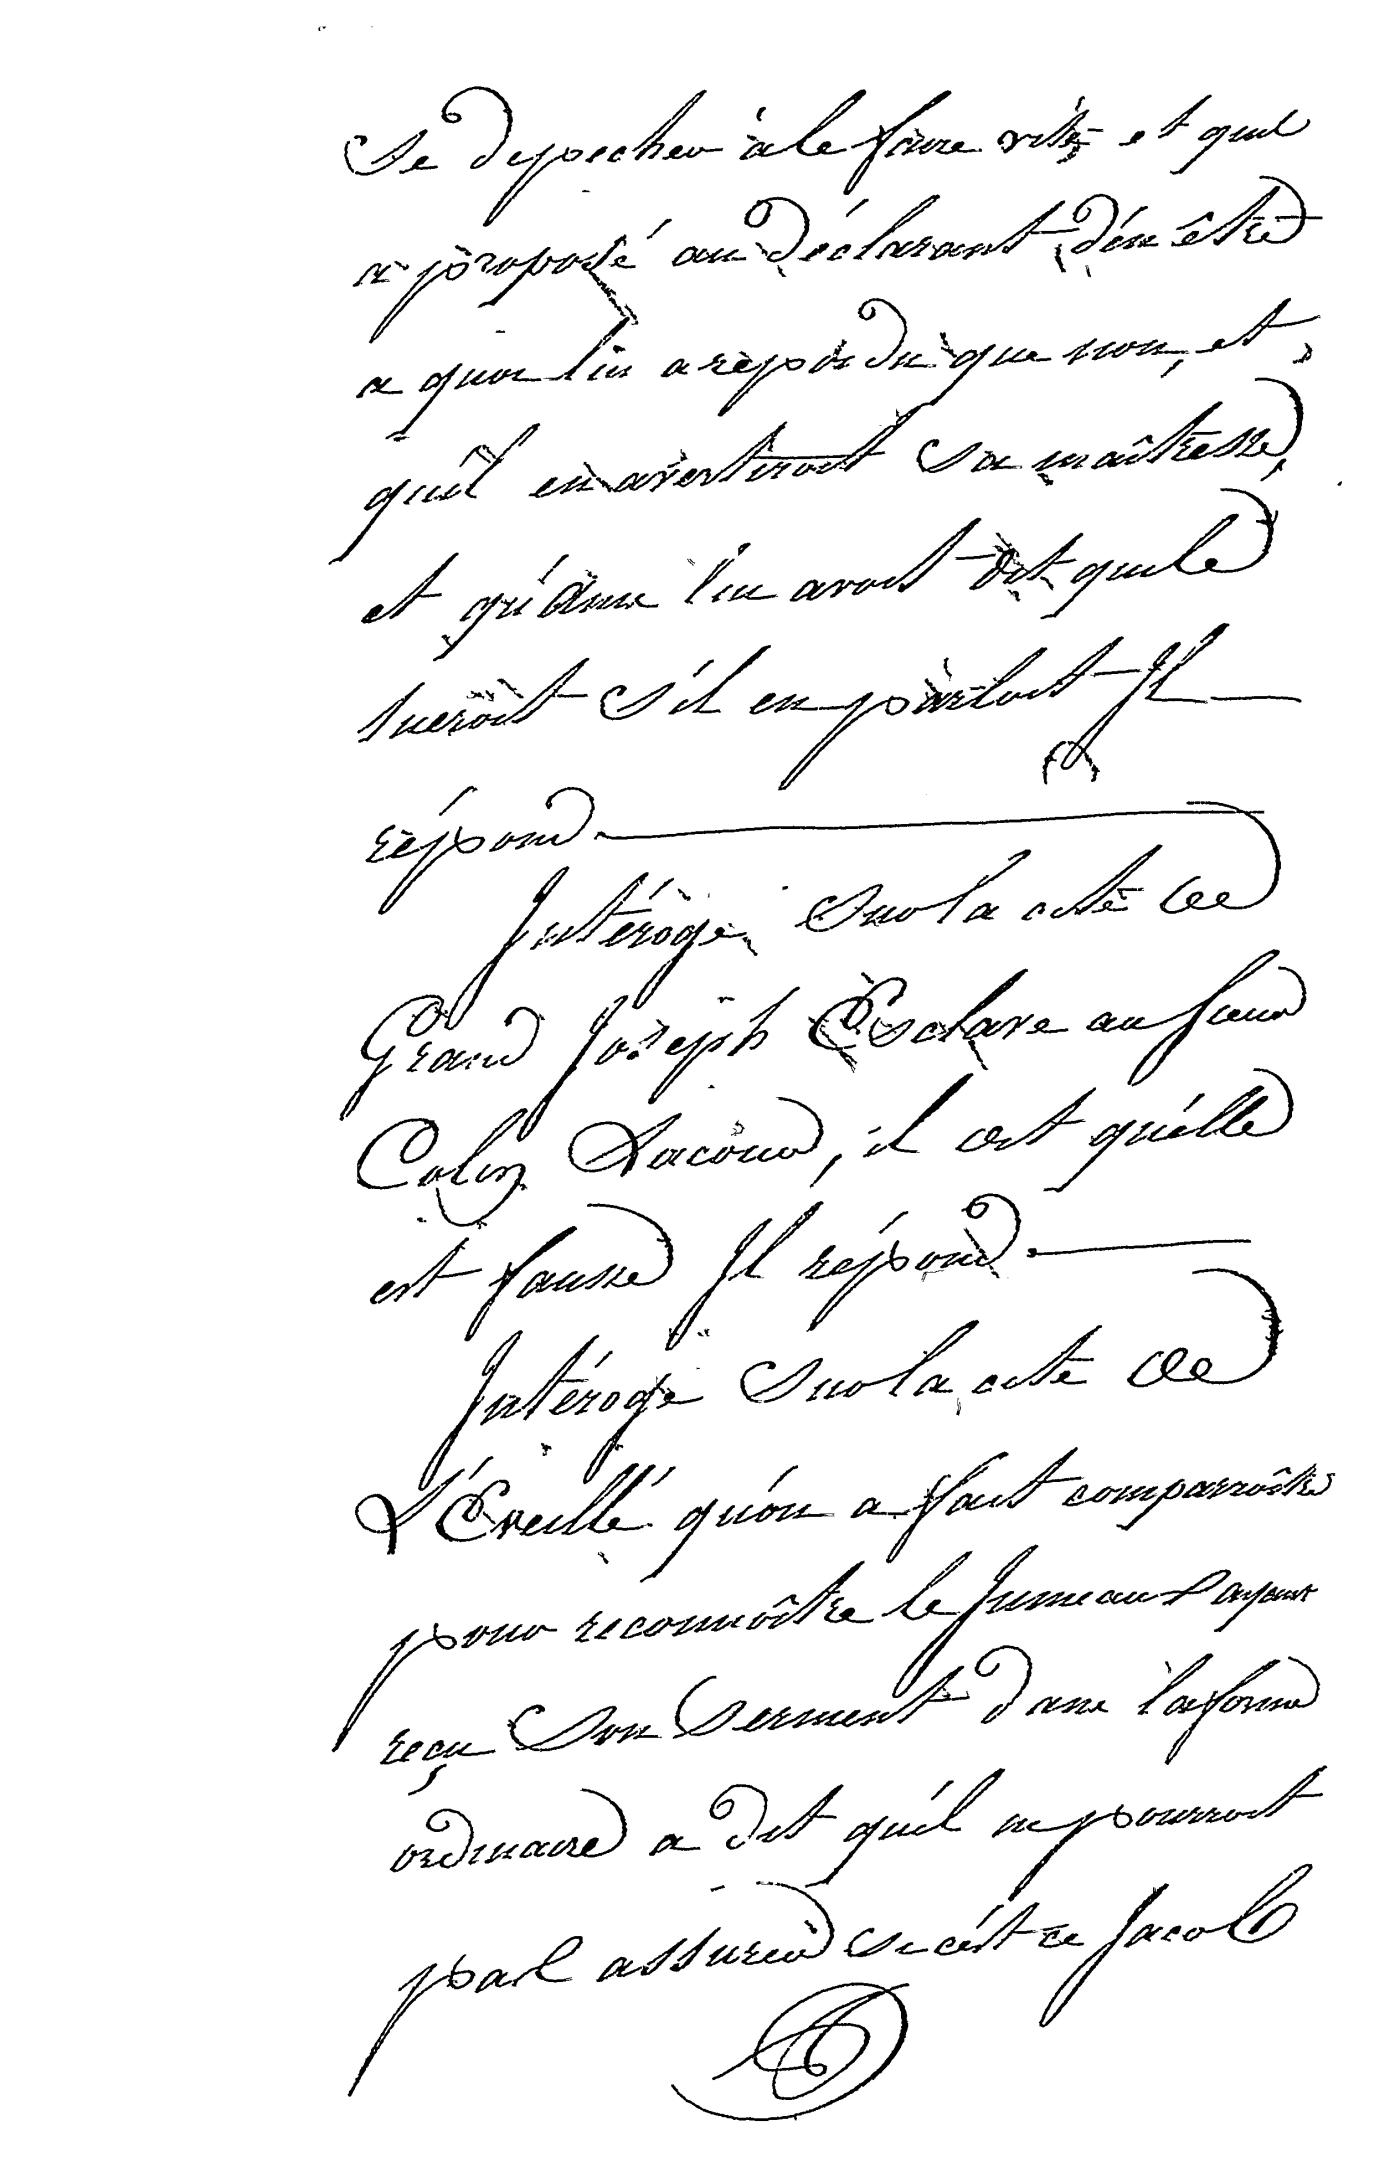 Se depecher à le faire vite, et quil
a proposé au déclarant d'én être
a quoi lui a répondu que non, et
qu'il en avertiroit Sa maîtresse,
et qu'a lui avoit dit qu'il le
tueroit S'il en parloit Il
répond
Intérogé Sur la cité de
Grand Joseph Esclave au Sieur
Colin Lacour, il dit qu'élle
est fausse Il répond
Intérogé Sur la cité de
L'Éveillé qu'ón a fait comparroître
pour reconnoître le Jumeaux ayant
reçu Son Serment dans la forme
ordinaire a dit qu'il ne pourroit
pas assurer Si cést ce Jacob